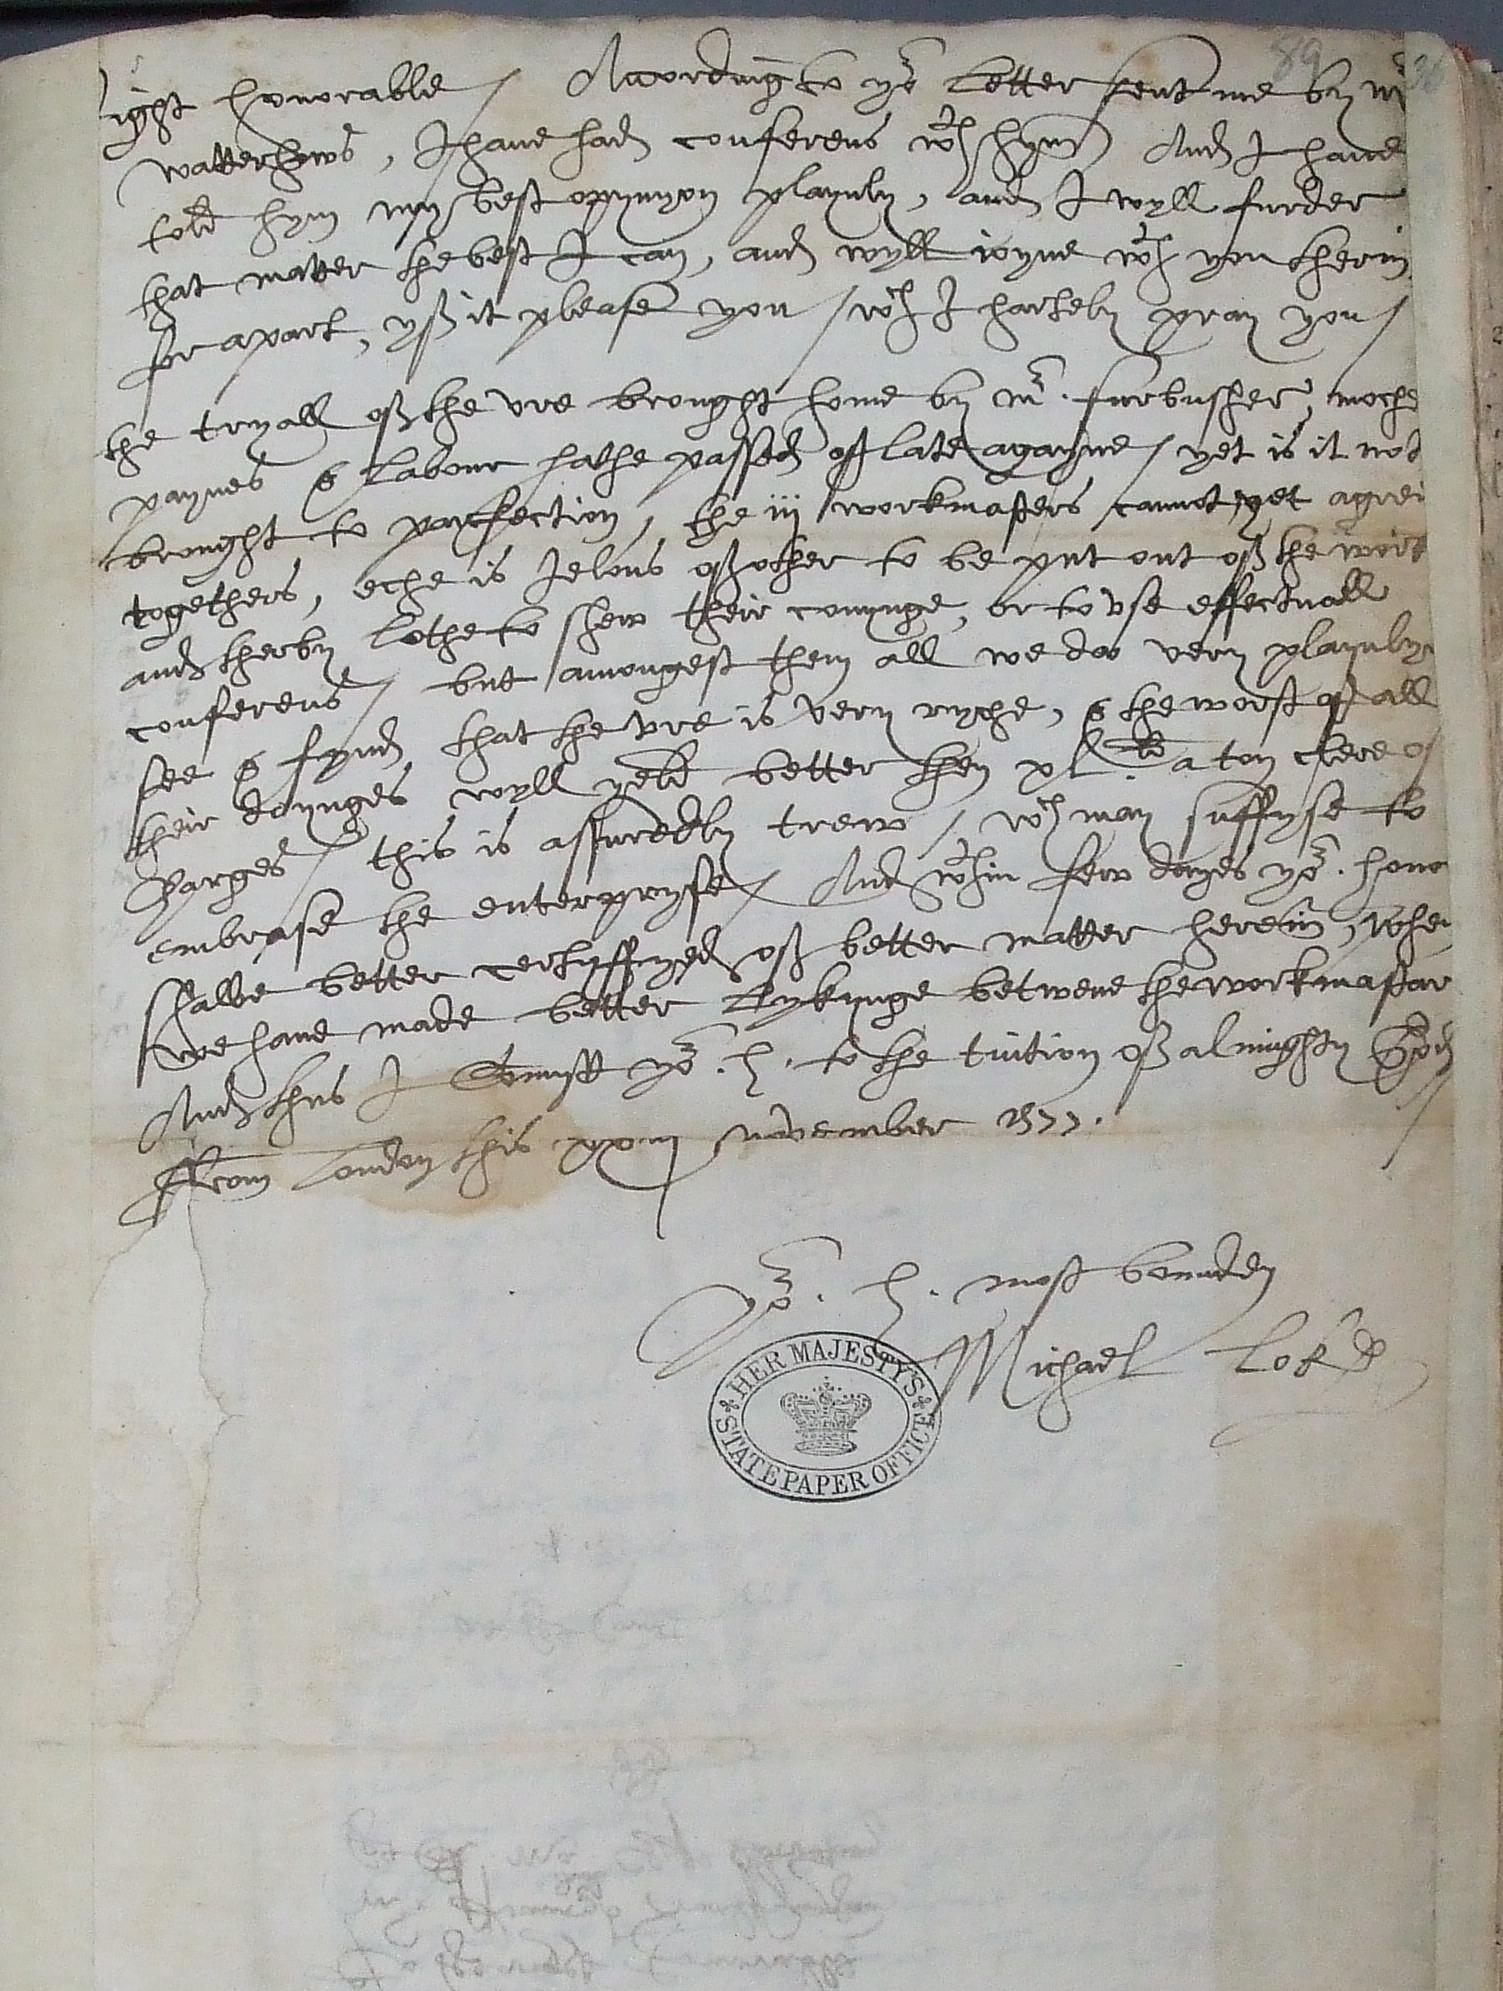 89 36
ight honorable / According to yor letter sent me by mr
watterhows, I have had conferens wth hym And I have
told hym my best opynyon playnly, and I wyll furder
that matter the best I can, and wyll ioyne wth you therin
for a part, yf it please you / wch I hartely pray you /
the tryall of the vre brought home by mr. furbusher, moche
paynes & labour hathe passed of late agayne / yet is it not
brought to parfection, the iij workmasters cannot yet agre
togethers, eche is Jelous of other to be put out of the work
and therby lothe to shew their conynge, or to vse effectuall
conferens / but amongest them all we do very playnly
see & fynd that the vre is very ryche, & the worst of all
their doynges wyll yeld better then xl li a ton clere of
charges / this is assuredly trew / wch may suffyse to
embrase the enterpryse / And wthin few dayes yor. honor
shalbe better certyffyed of better matter herein, when
we have made better lykynge betwene the workmastar
And thus I Comytt yor. h. to the tuition of almighty God /
ffrom London this xxiij november 1577.
yor. h. most bounden
Michael Lok
HER MAJESTY'S
STATE PAPER OFFICE